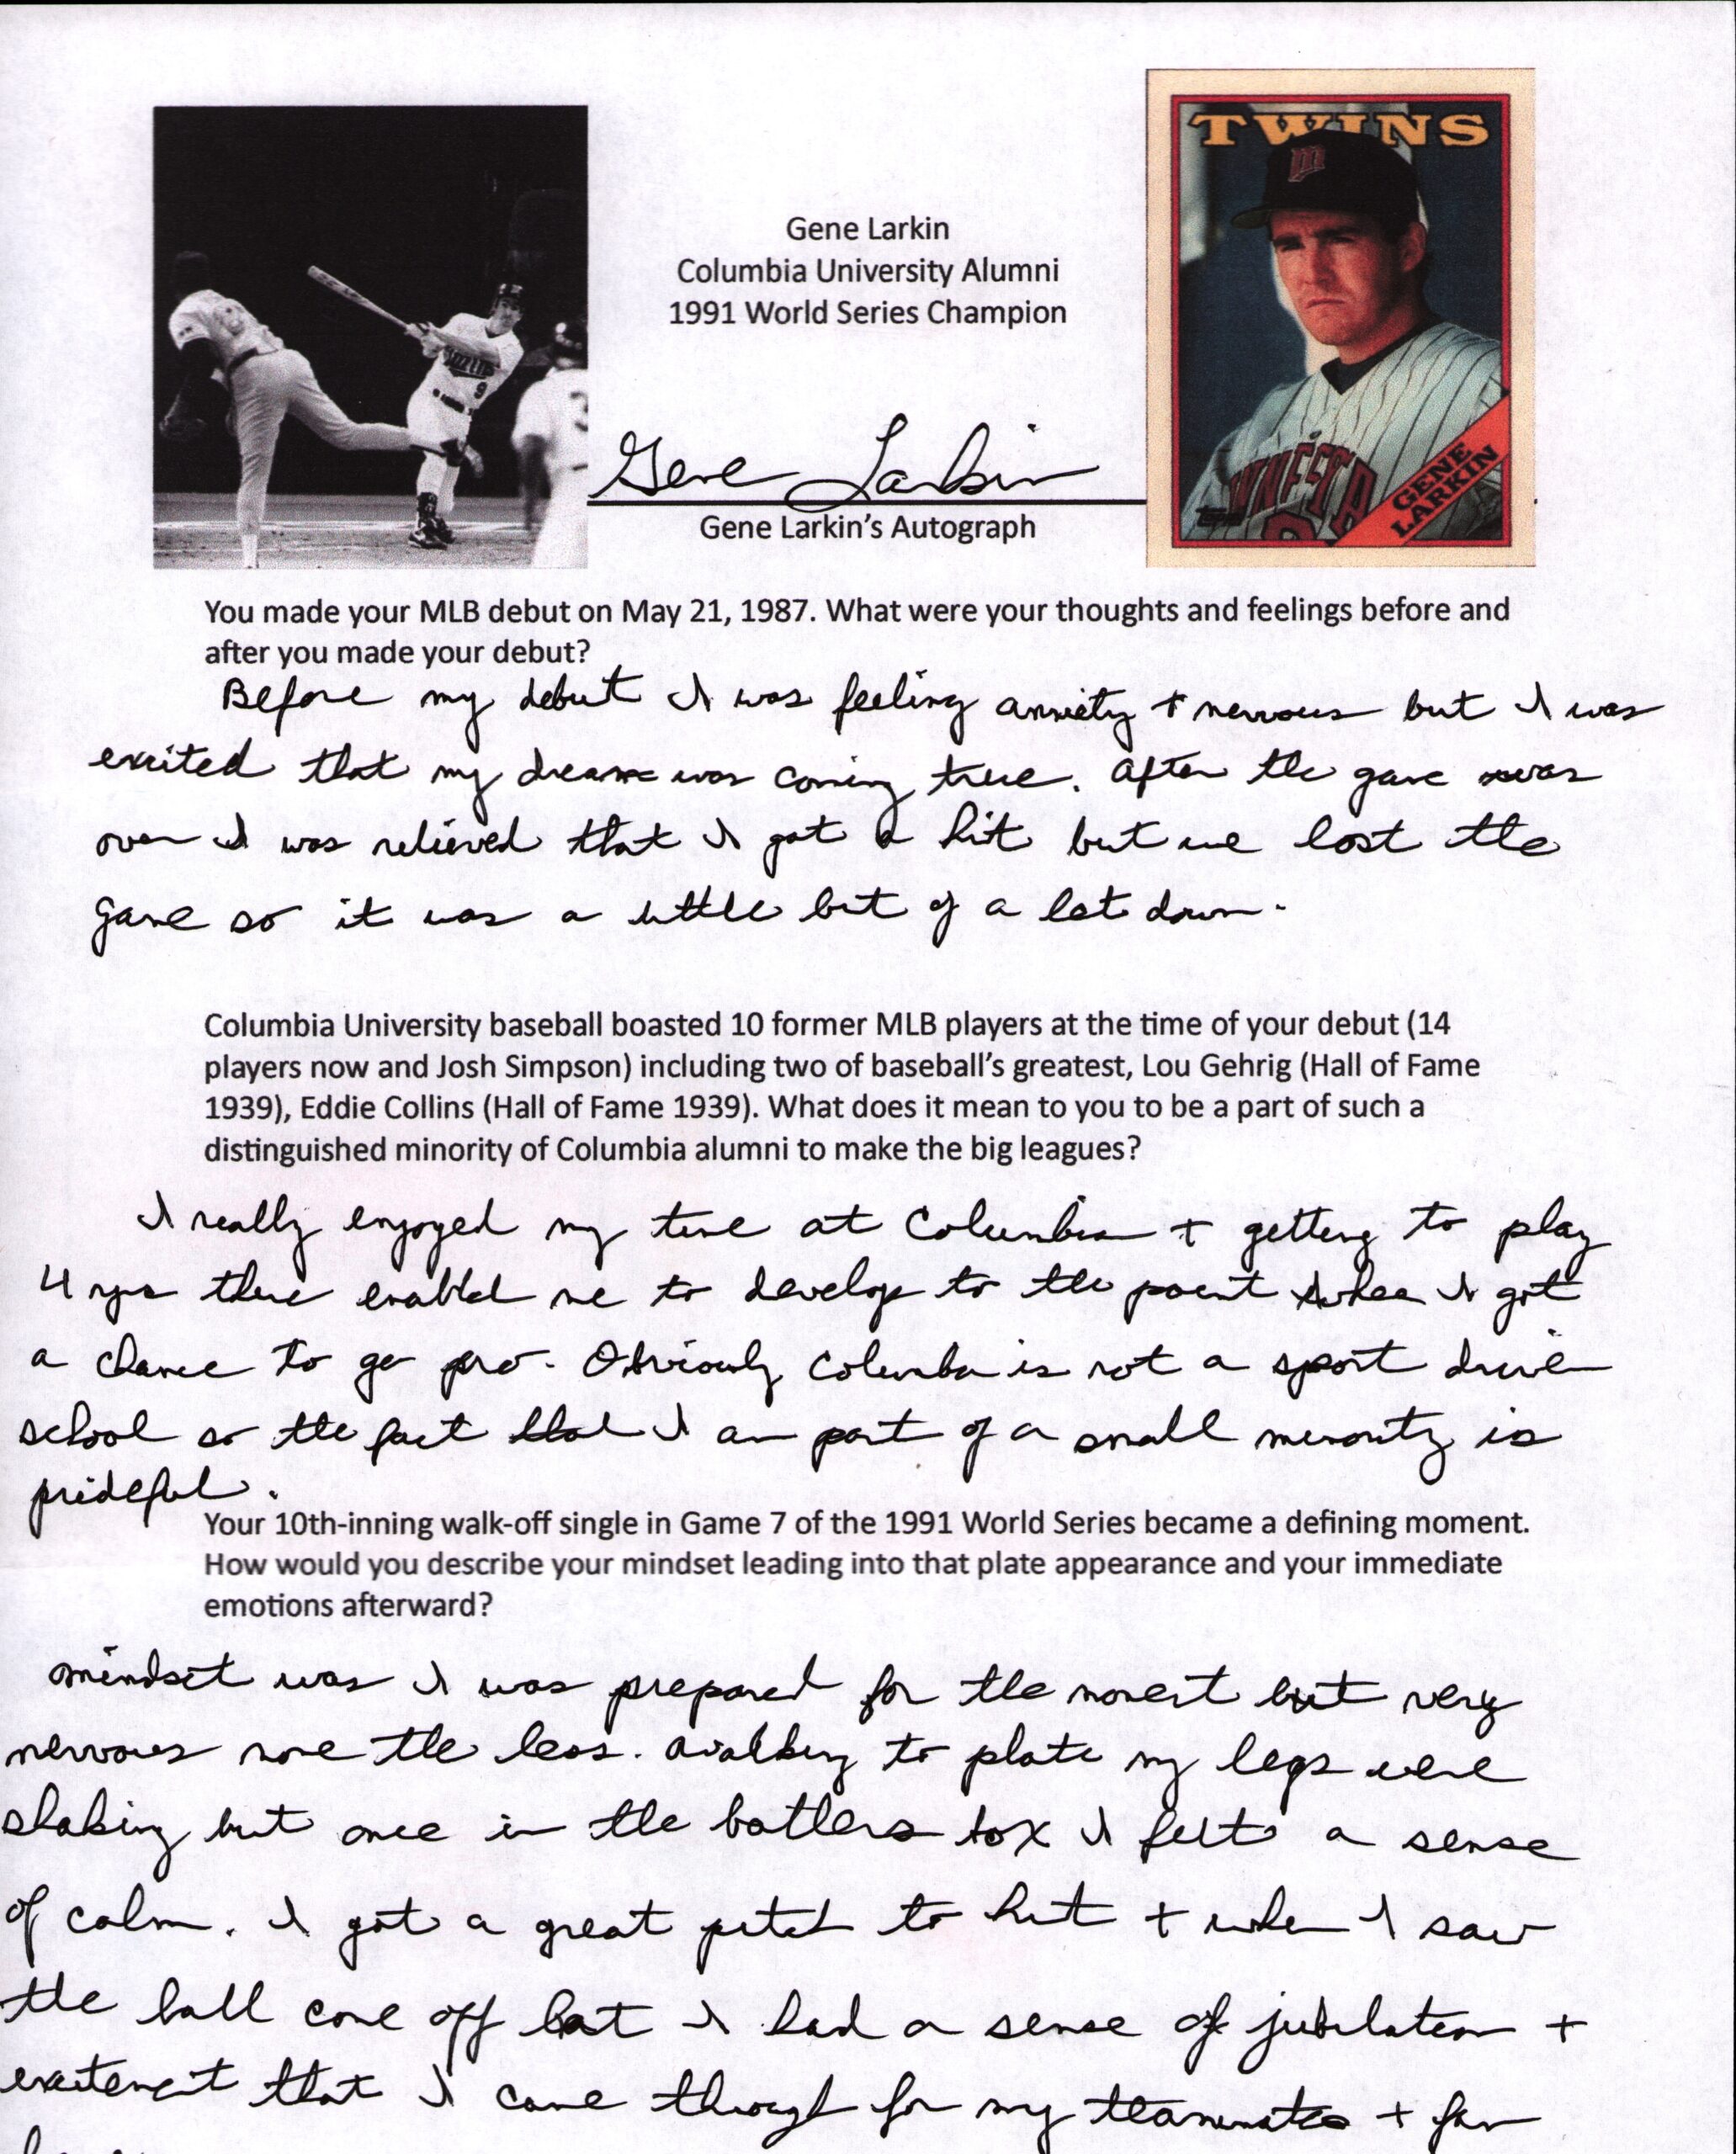 TWINS
Gene Larkin
Columbia University Alumni
1991 World Series Champion
Twins
9
3
Gene Larkin
Gene Larkin's Autograph
GENE
LARKIN
You made your MLB debut on May 21, 1987. What were your thoughts and feelings before and
after you made your debut?
Before my debut I was feeling anxiety + nervous but I was
excited that my dream was coming true. After the game was
over I was relieved that I got a hit but we lost the
game so it was a little bit of a let down.
Columbia University baseball boasted 10 former MLB players at the time of your debut (14
players now and Josh Simpson) including two of baseball's greatest, Lou Gehrig (Hall of Fame
1939), Eddie Collins (Hall of Fame 1939). What does it mean to you to be a part of such a
distinguished minority of Columbia alumni to make the big leagues?
I really enjoyed my time at Columbia + getting to play
4 yrs there enabled me to develop to the point where I got
a chance to go pro. Obviously Columbia is not a sport driven
school so the fact that I am part of a small minority is
prideful.
Your 10th-inning walk-off single in Game 7 of the 1991 World Series became a defining moment.
How would you describe your mindset leading into that plate appearance and your immediate
emotions afterward?
mindset was I was prepared for the moment but very
nervous none the less. Walking to plate my legs were
shaking but once in the batters box I felt a sense
of calm. I got a great pitch to hit + when I saw
the ball come off bat I had a sense of jubilation +
excitement that I came through for my teammates + for